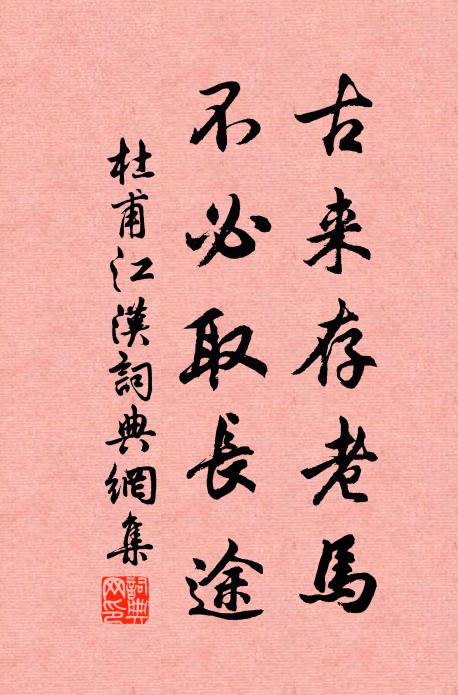 古来存老馬
不必取長途
杜甫江漢詞典網集
詞典網印